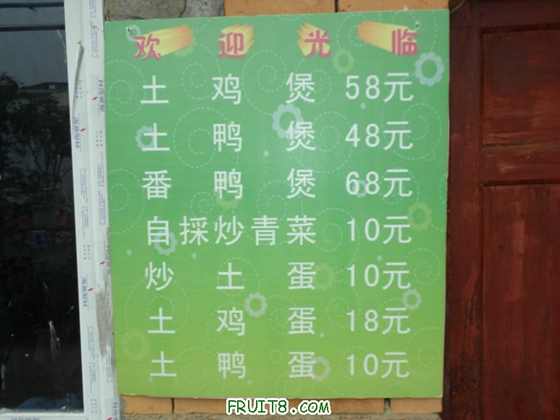 欢迎光临
土鸡煲 58元
土鸭煲 48元
番鸭煲 68元
自採炒青菜 10元
炒土蛋 10元
土鸡蛋 18元
土鸭蛋 10元
FRUIT8.COM